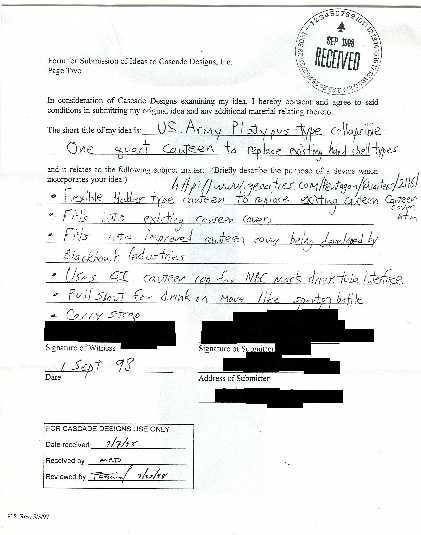 SEP 1998
RECEIVED
Form for Submission of Ideas to Cascade Designs, Inc.
Page Two
In consideration of Cascade Designs examining my idea, I hereby consent and agree to said
conditions in submitting my original idea and any additional material relating thereto.
The short title of my idea is: US. Army Platypus type collapsible
One quart Canteen to replace existing hard shell types
and it relates to the following subject matter. (Briefly describe the purpose of a device which
incorporates your idea.)
http://www.geocities.com/Pentagon/Quarters/2116/
Canteen
cover
htm
• Flexible bladder Type canteen To replace existing canteen
• Fits into existing canteen covers
• Fits into improved canteen cover being developed by
Blackhawk Industries
• Uses GI canteen cap for NBC mask drink tube interface
• Pull Spout for drink on move like sports bottle
• Carry strap
Signature of Witness
Signature of Submitter
1 Sept 98
Date
Address of Submitter
FOR CASCADE DESIGNS USE ONLY
Date received
Received by
Reviewed by